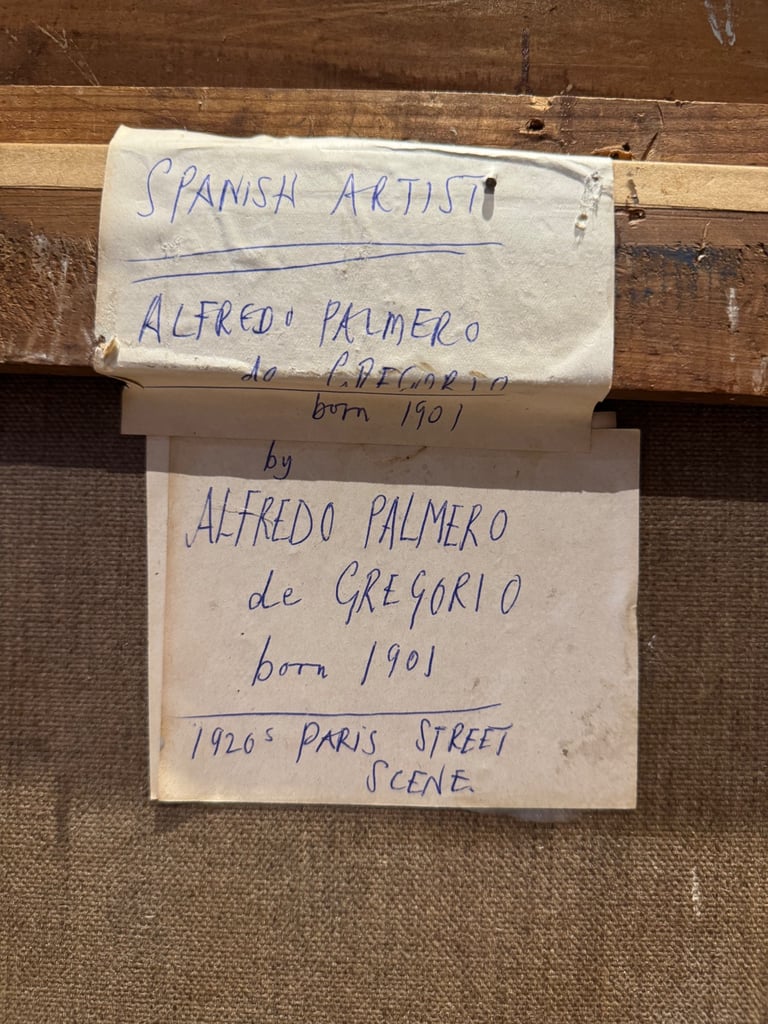 SPANISH ARTIST
ALFREDO PALMERO
de GREGORIO
born 1901
by
ALFREDO PALMERO
de GREGORIO
born 1901
1920s PARIS STREET
SCENE.